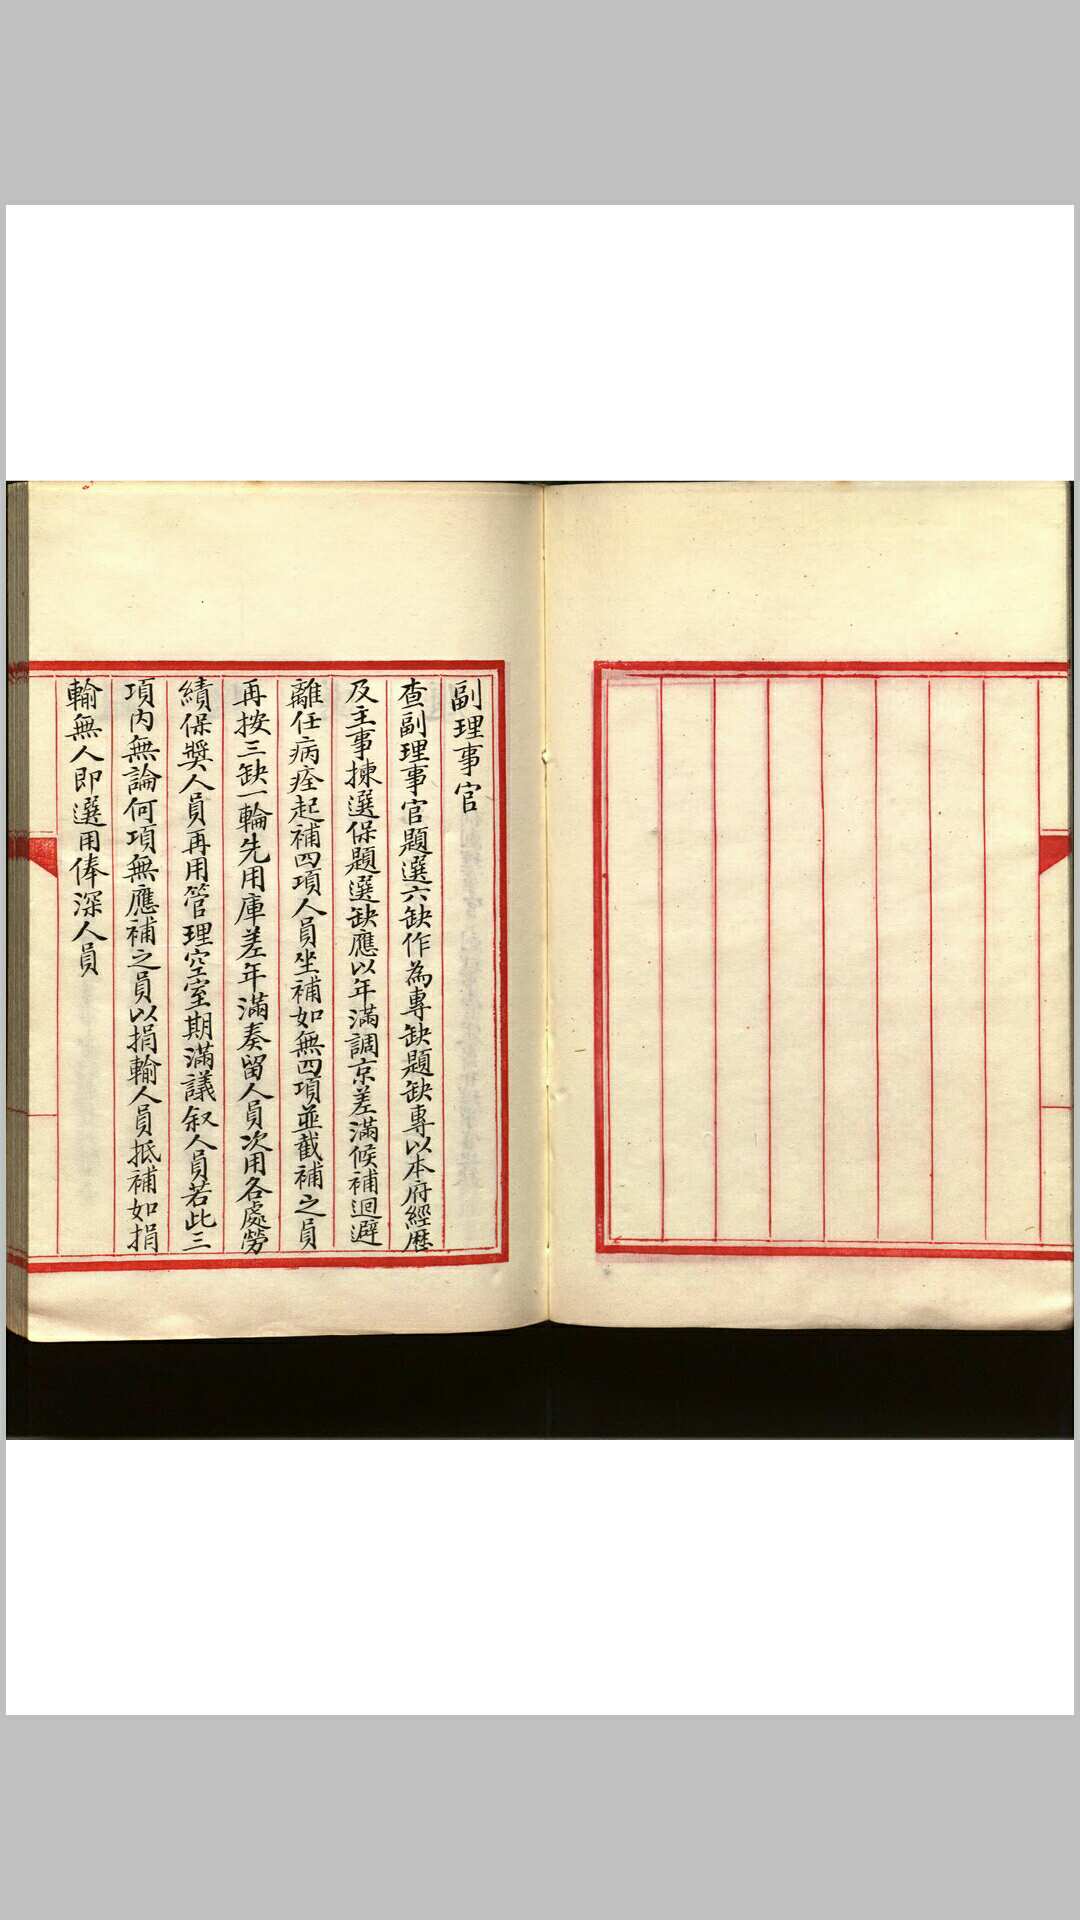 副理事官
查副理事官題選六缺作為專缺題缺專以本府經歷
及主事揀選保題選缺應以年滿調京差滿候補迴避
離任病痊起補四項人員坐補如無四項並截補之員
再按三缺一輪先用庫差年滿奏留人員次用各處勞
績保獎人員再用管理空室期滿議叙人員若此三
項內無論何項無應補之員以捐輸人員抵補如捐
輸無人即選用俸深人員